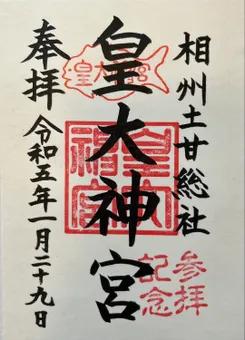 相州土甘総社
皇大神宮
奉拝
令和五年一月二十九日
皇大神宮
参拝
記念